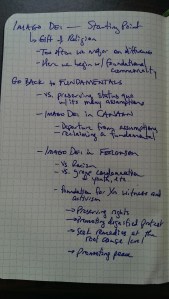 IMAGO DEI — STARTING POINT
↳ Gift of Religion
- Too often we major on differences
- Here we begin w/ foundational commonality
GO BACK TO FUNDAMENTALS
- vs. preserving status quo
w/ its many assumptions
- IMAGO DEI IN CREATION
- Departure from assumptions
- reclaiming a fundamental
- IMAGO DEI IN FERGUSON
- vs. Racism
- vs. group condemnation
youth, etc
- Foundation for Xn witness and
activism
→ Preserving rights
→ Promoting dignified protest
→ Seek remedies at the
root cause level
→ Promoting peace